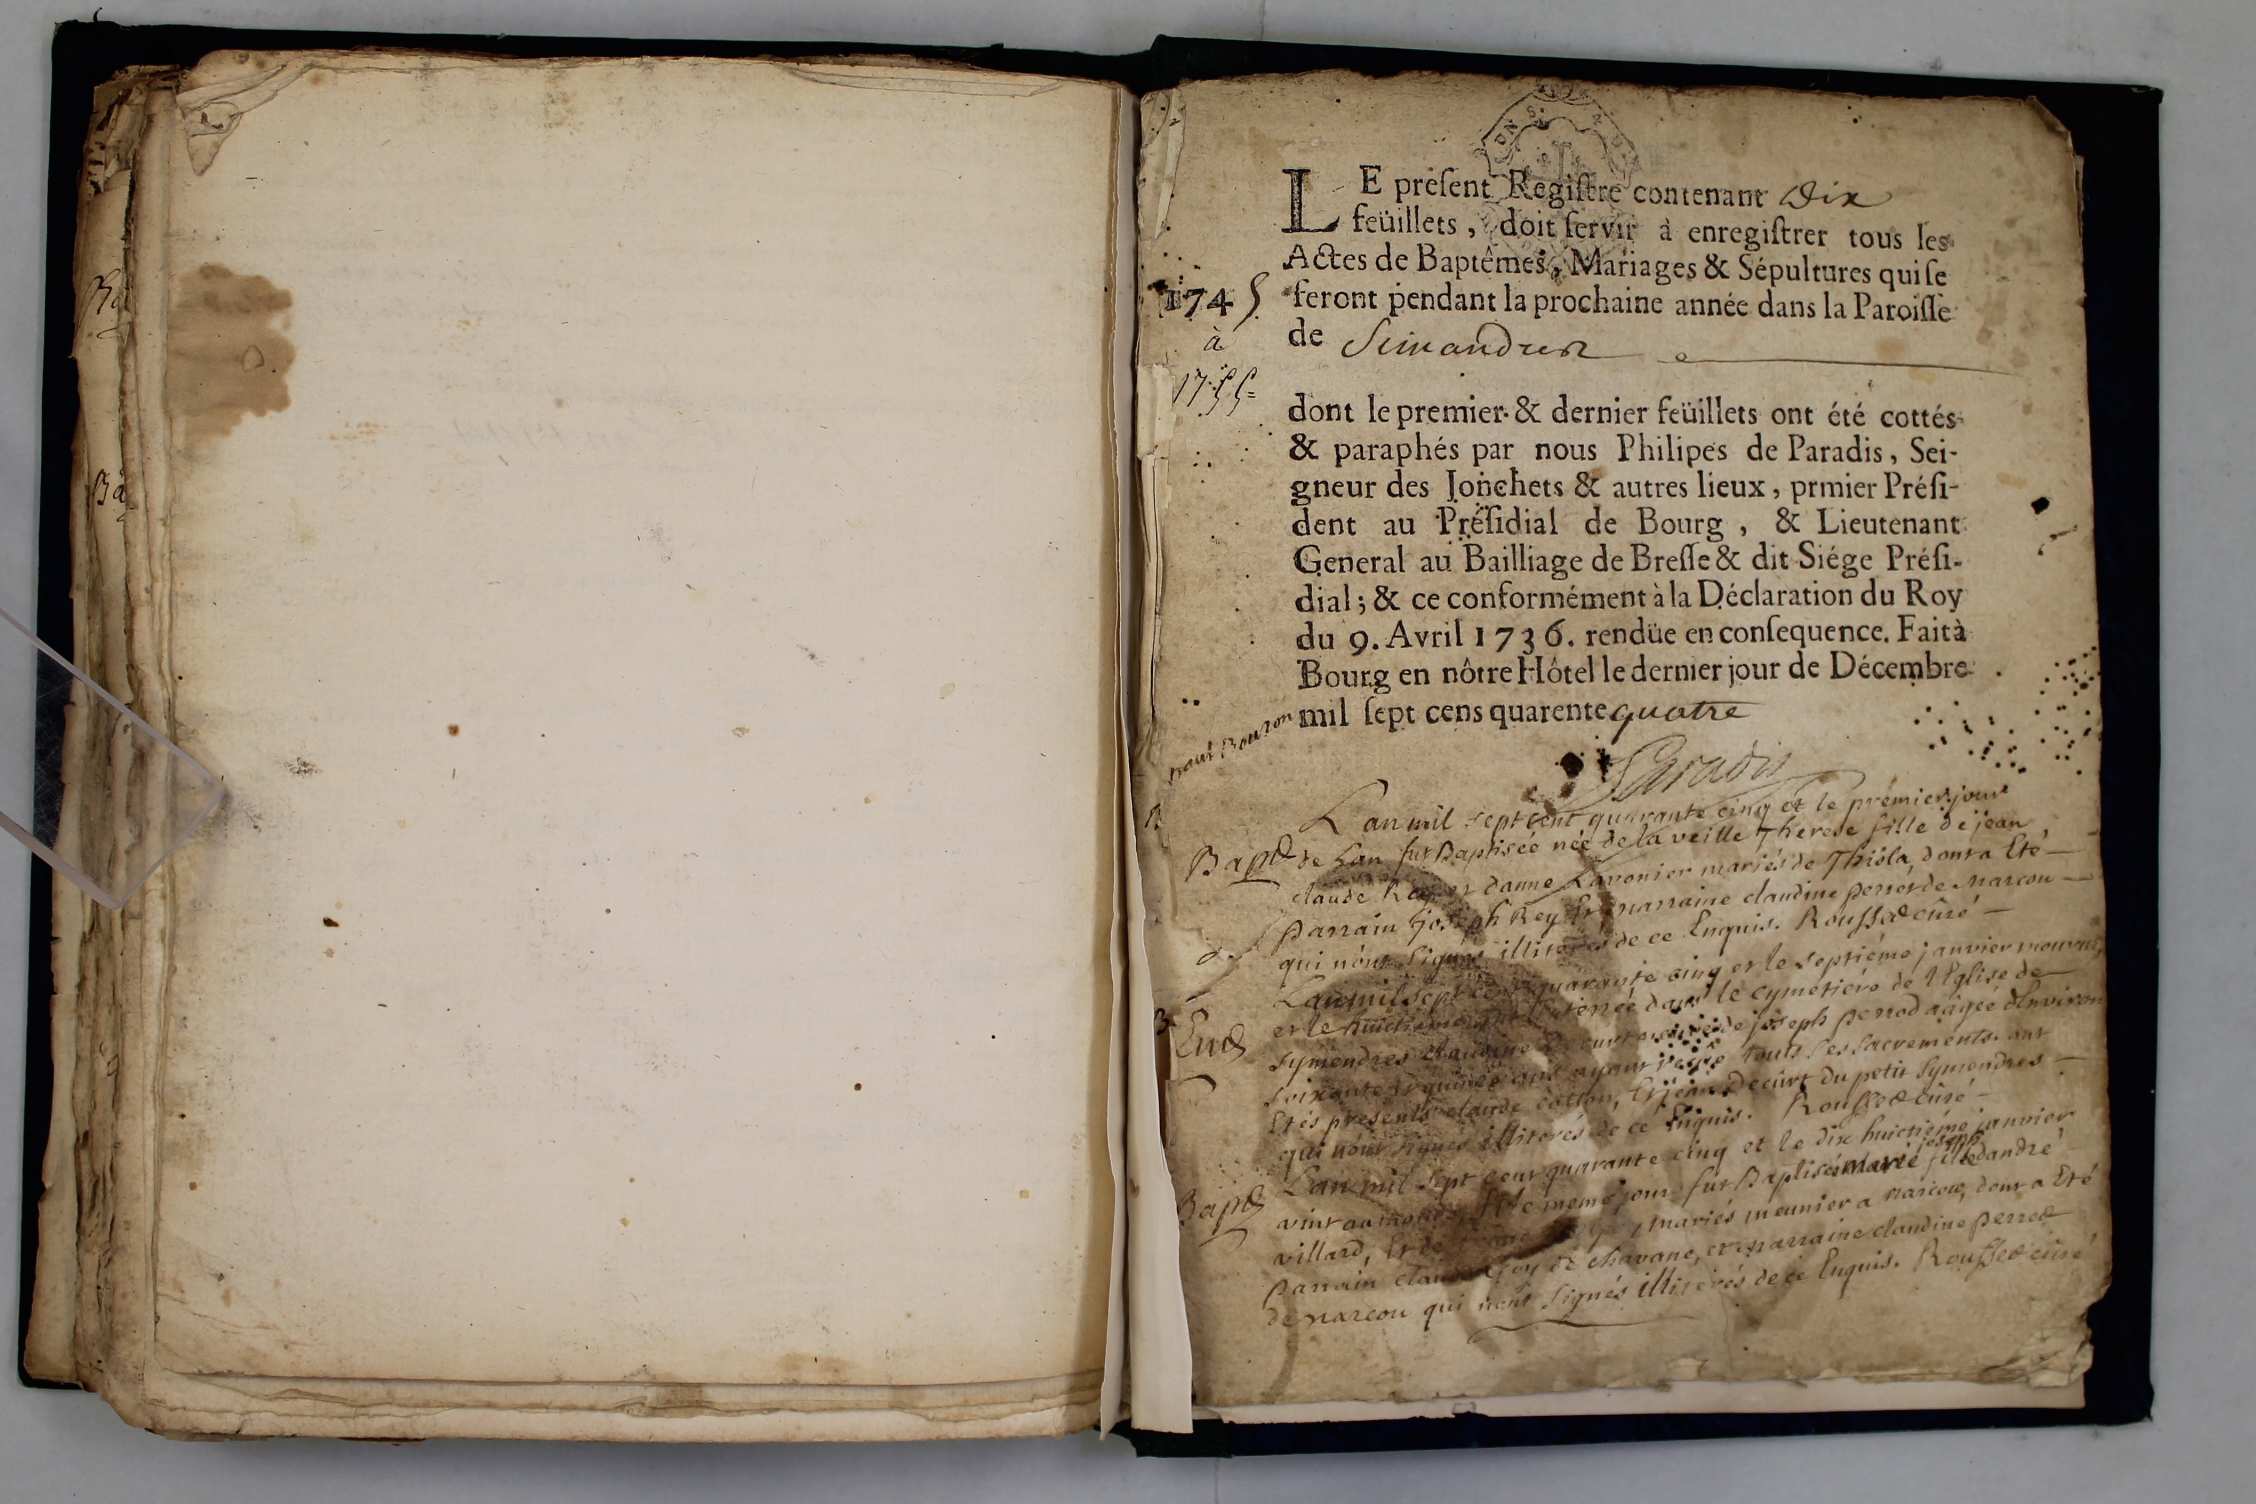 LE présent Registre contenant Dix
feüillets, doit servir à enregistrer tous les
Actes de Baptêmes, Mariages & Sépultures qui se
feront pendant la prochaine année dans la Paroisse
de Simandres
1745
à
1755
dont le premier & dernier feüillets ont été cottés
& paraphés par nous Philipes de Paradis, Sei-
gneur des Jonchets & autres lieux, prmier Prési-
dent au Présidial de Bourg, & Lieutenant
General au Bailliage de Bresse & dit Siége Prési-
dial; & ce conformément à la Déclaration du Roy
du 9. Avril 1736. rendüe en consequence. Fait à
Bourg en nôtre Hôtel le dernier jour de Décembre
mil sept cens quarente quatre
Paradis
Lan mil sept cent quarante cinq et le prémier jour
Bapt de Lan fut Baptisée née de la veille Therese fille de jean
claude Rey et danne Lavonier mariés de Thiola, dont a Eté
parrain joseph Rey Et marraine claudine perret de marcou
qui n'ont signés illiterés de ce Enquis. Rousset cüré
Lan mil sept cent quarante cinq et le septiéme janvier mourut,
et le huictieme fut Enterrée dans le cymetiere de l'Eglise de
Ent symendres claudine Decurt veuve de joseph perrod aagée d'Environ
soixante et quinze ans ayant reçue touts ses sacrements. ont
Etés presents claude cotton, Et jean Decürt du petit symendres
qui n'ont signés illiterés de ce Enquis. Rousset cüré
Lan mil sept cent quarante cinq et le dix huictiéme janvier
joseph
Bapt vint au monde, Et le meme jour fut Baptisé marie fille dandré
villard, Et de mariés meunier a marcou, dont a Eté
parrain claude Goy de chavane, et marraine claudine perret
de marcou qui n'ont signés illiterés de ce Enquis. Rousset cüré